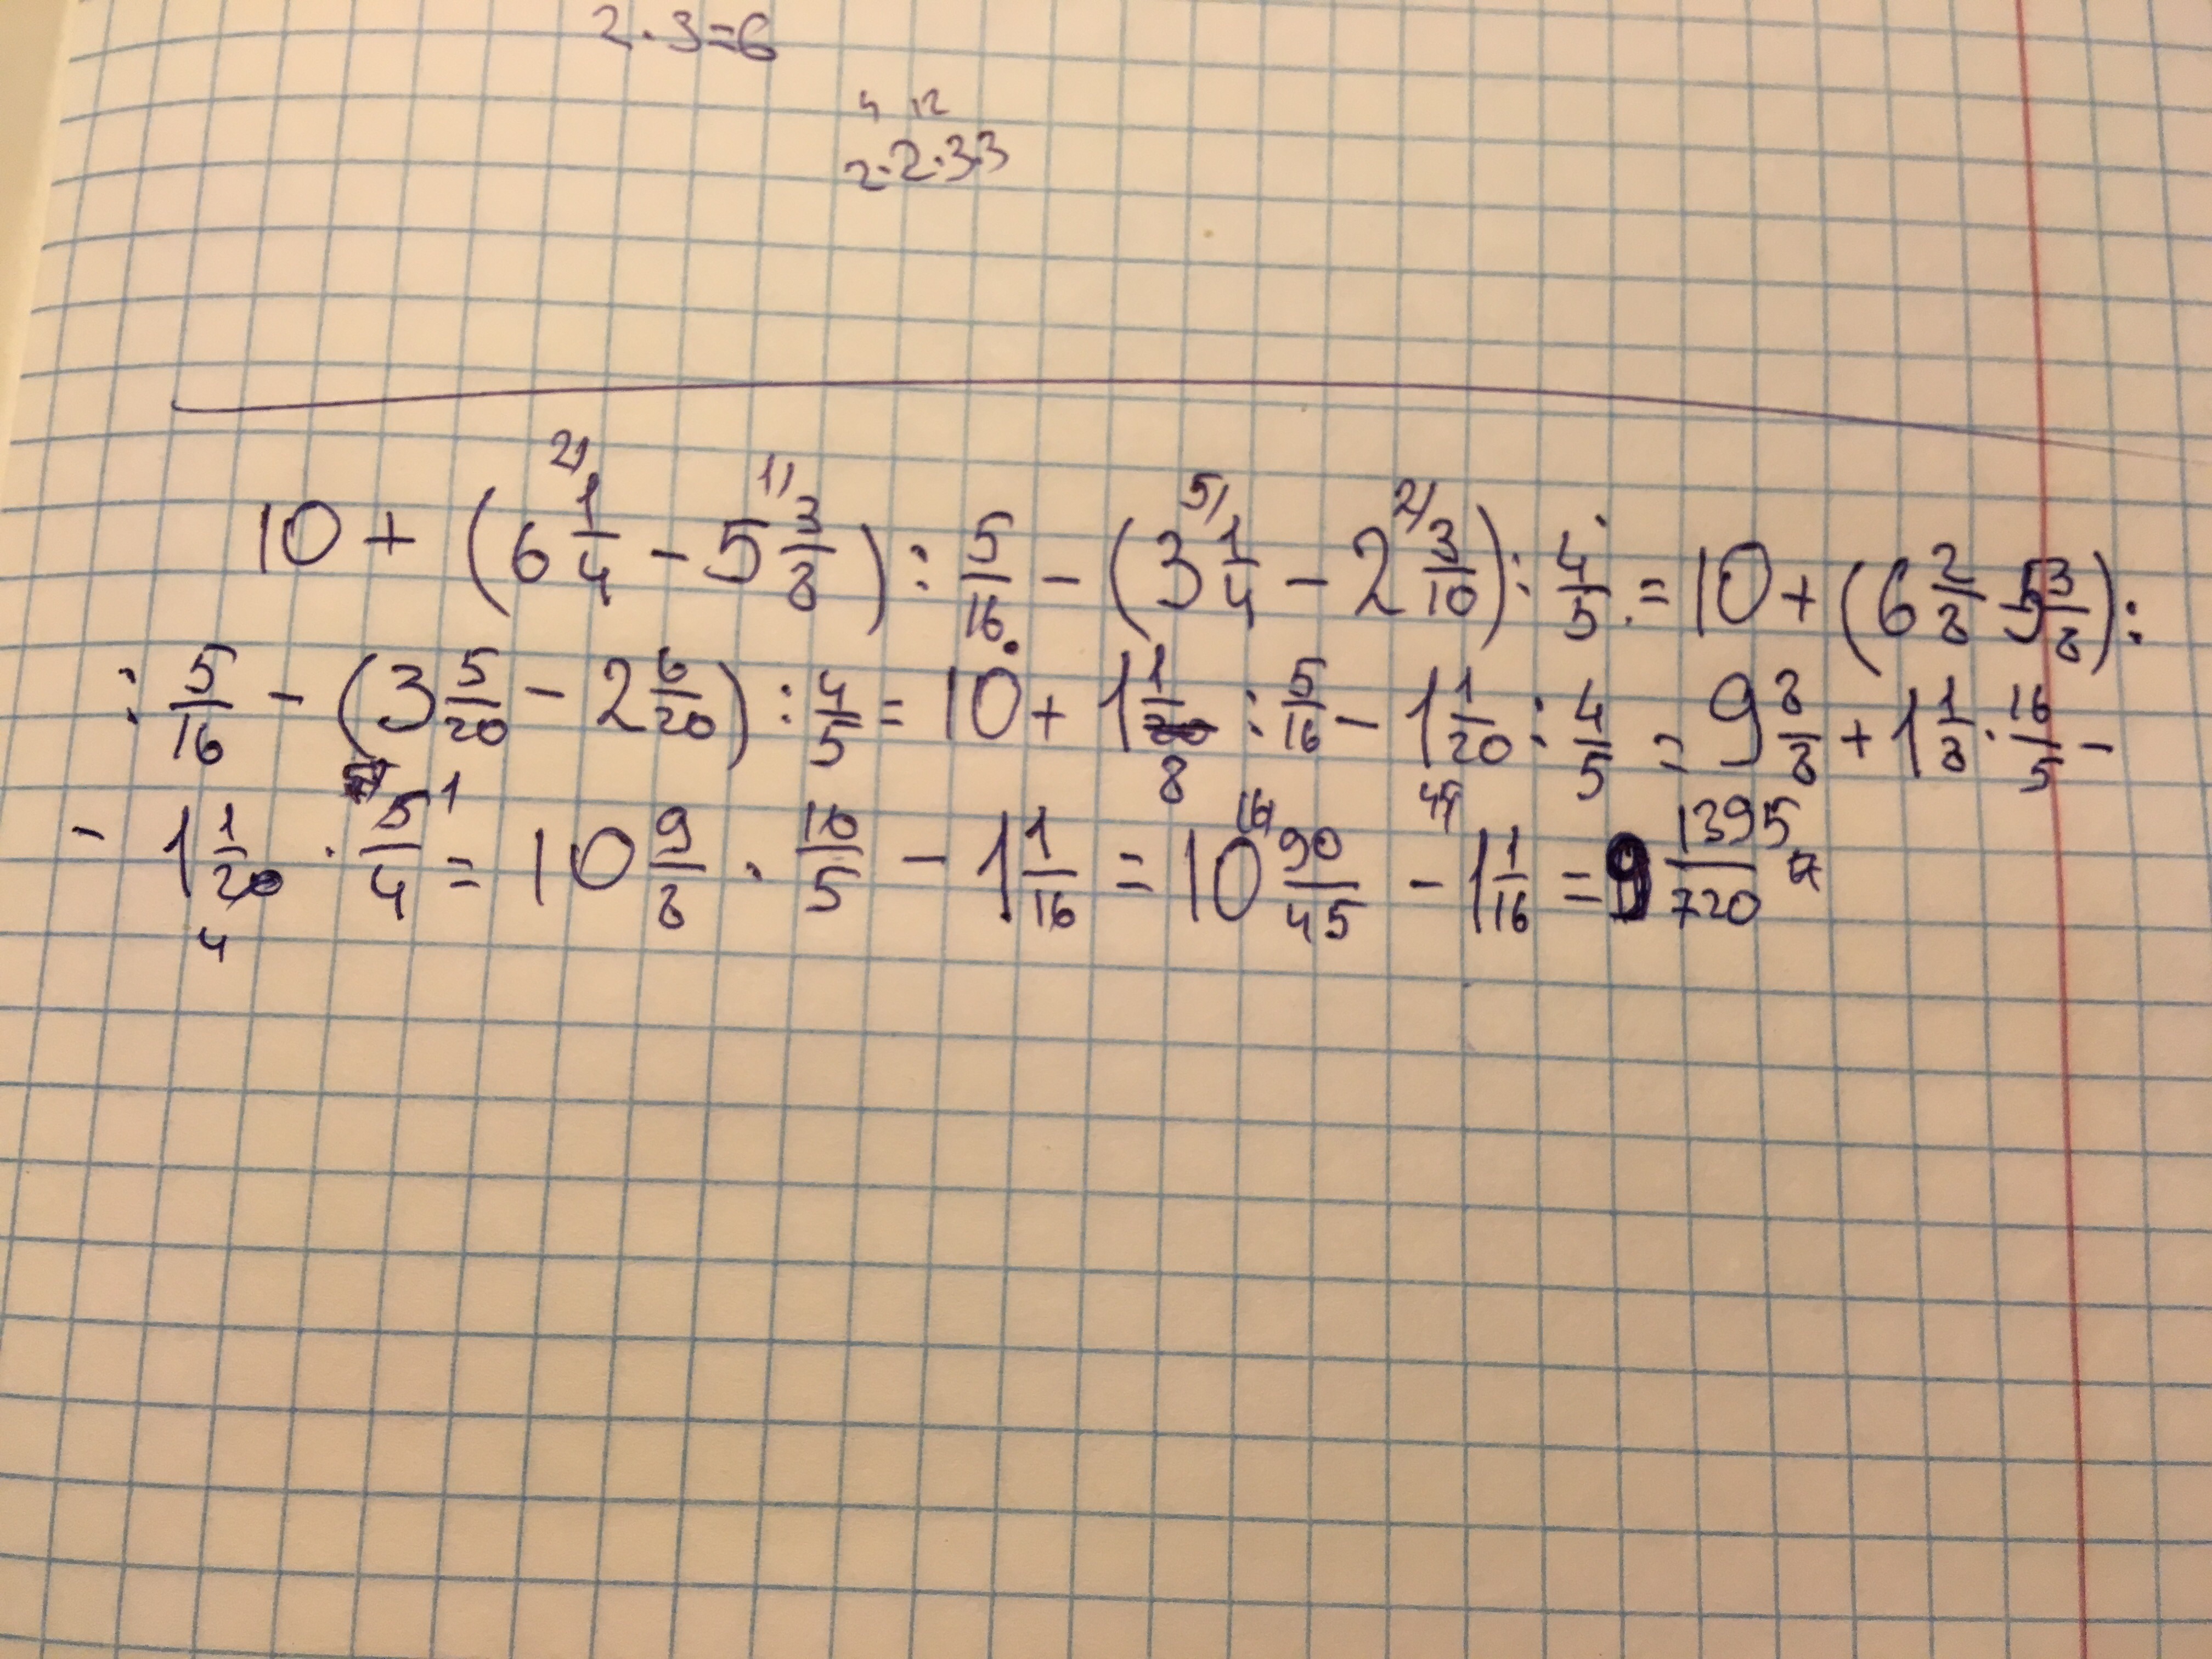 2·3=6
4 12
2·2·3·3
10 + (6 1/4 - 5 3/8) : 5/16 - (3 1/4 - 2 3/10) : 4/5 = 10 + (6 2/8 - 5 3/8) :
: 5/16 - (3 5/20 - 2 6/20) : 4/5 = 10 + 1 1/8 : 5/16 - 1 1/20 : 4/5 = 9 8/8 + 1 1/8 · 16/5 -
- 1 1/20 · 5/4 = 10 9/8 · 16/5 - 1 1/16 = 10 90/45 - 1 1/16 = 9 1395/720